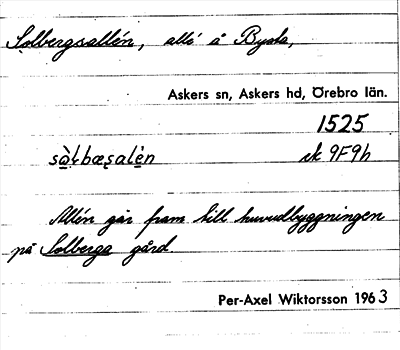 Solbergsallén, allé å Bysta,
Askers sn, Askers hd, Örebro län.
1525
sò̀ɫbæsalèn ek 9F9h
Allén går fram till huvudbyggningen
på Solberga gård.
Per-Axel Wiktorsson 1963